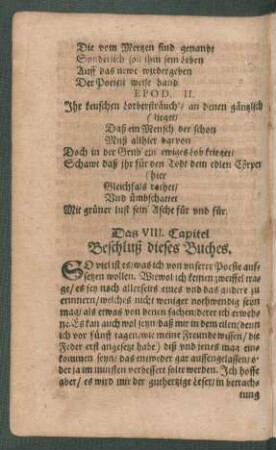 Die vom Mertzen sind genandt
Sonderlich soll ihm sein Leben
Auff das newe wiedergeben
Der Poeten weise hand
EPOD. II.
Ihr keuschen Lorbersträuch'/ an denen gäntzlich
(lieget/
Daß ein Mensch der schon
Muß allhier darvon
Doch in der Grub' ein ewiges lob krieget/
Schawt daß ihr für den Todt dem edlen Cörper
(hier
Gleichfals rathet/
Vnd vmbschattet
Mit grüner lust sein Asche für vnd für.
Das VIII. Capitel
Beschluß dieses Buches.
SO viel ist es/ was ich von vnserer Poesie auff-
setzen wollen. Wiewol ich keinen zweiffel tra-
ge/ es sey noch allerseits eines vnd das andere zu
erinnern/ welches nicht weniger nothwendig sein
mag/ als etwas von denen sachen/ derer ich erweh-
ne. Es kan auch wol seyn/ daß mir in dem eilen/ (denn
ich vor fünff tagen/ wie meine Freunde wissen/ die
Feder erst angesetzt habe) diß vnd jenes mag ein-
kommen seyn/ das entweder gar aussengelassen/ o-
der ja im minsten verbessert solte werden. Ich hoffe
aber/ es wird mir der guthertzige Leser/ in betrach-
tung